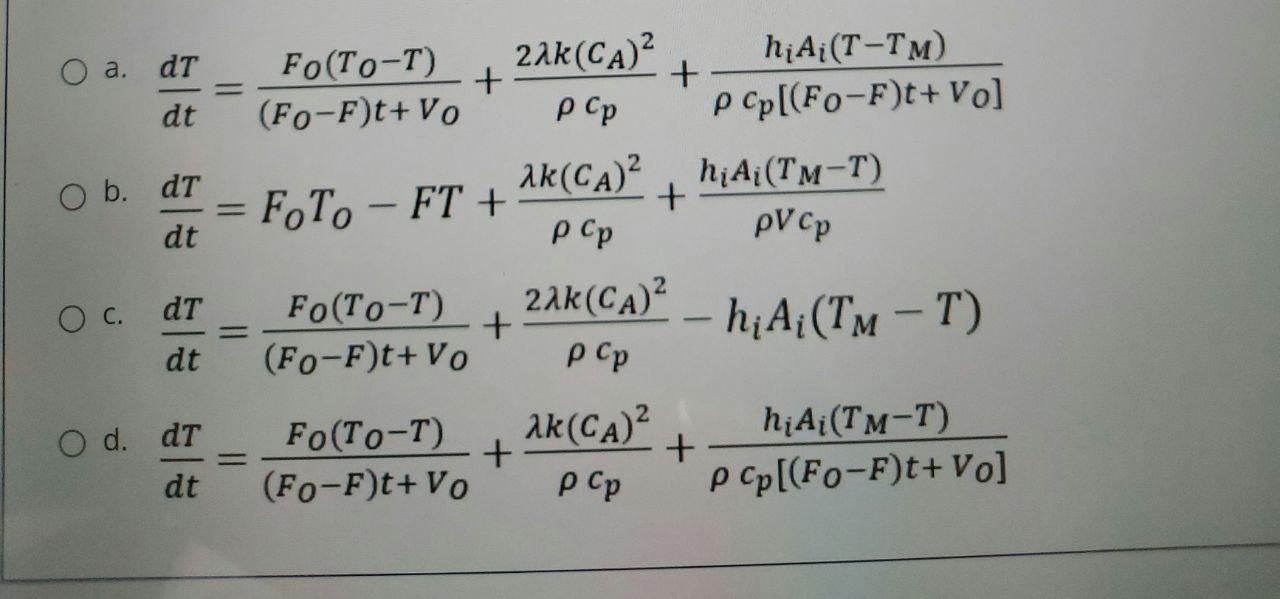 a. dT/dt = Fo(To−T)/((Fo−F)t+ Vo) + 2λk(CA)²/(ρ cp) + hiAi(T−TM)/(ρ cp[(Fo−F)t+ Vo])
b. dT/dt = FoTo − FT + λk(CA)²/(ρ cp) + hiAi(TM−T)/(ρV cp)
c. dT/dt = Fo(To−T)/((Fo−F)t+ Vo) + 2λk(CA)²/(ρ cp) − hiAi(TM − T)
d. dT/dt = Fo(To−T)/((Fo−F)t+ Vo) + λk(CA)²/(ρ cp) + hiAi(TM−T)/(ρ cp[(Fo−F)t+ Vo])